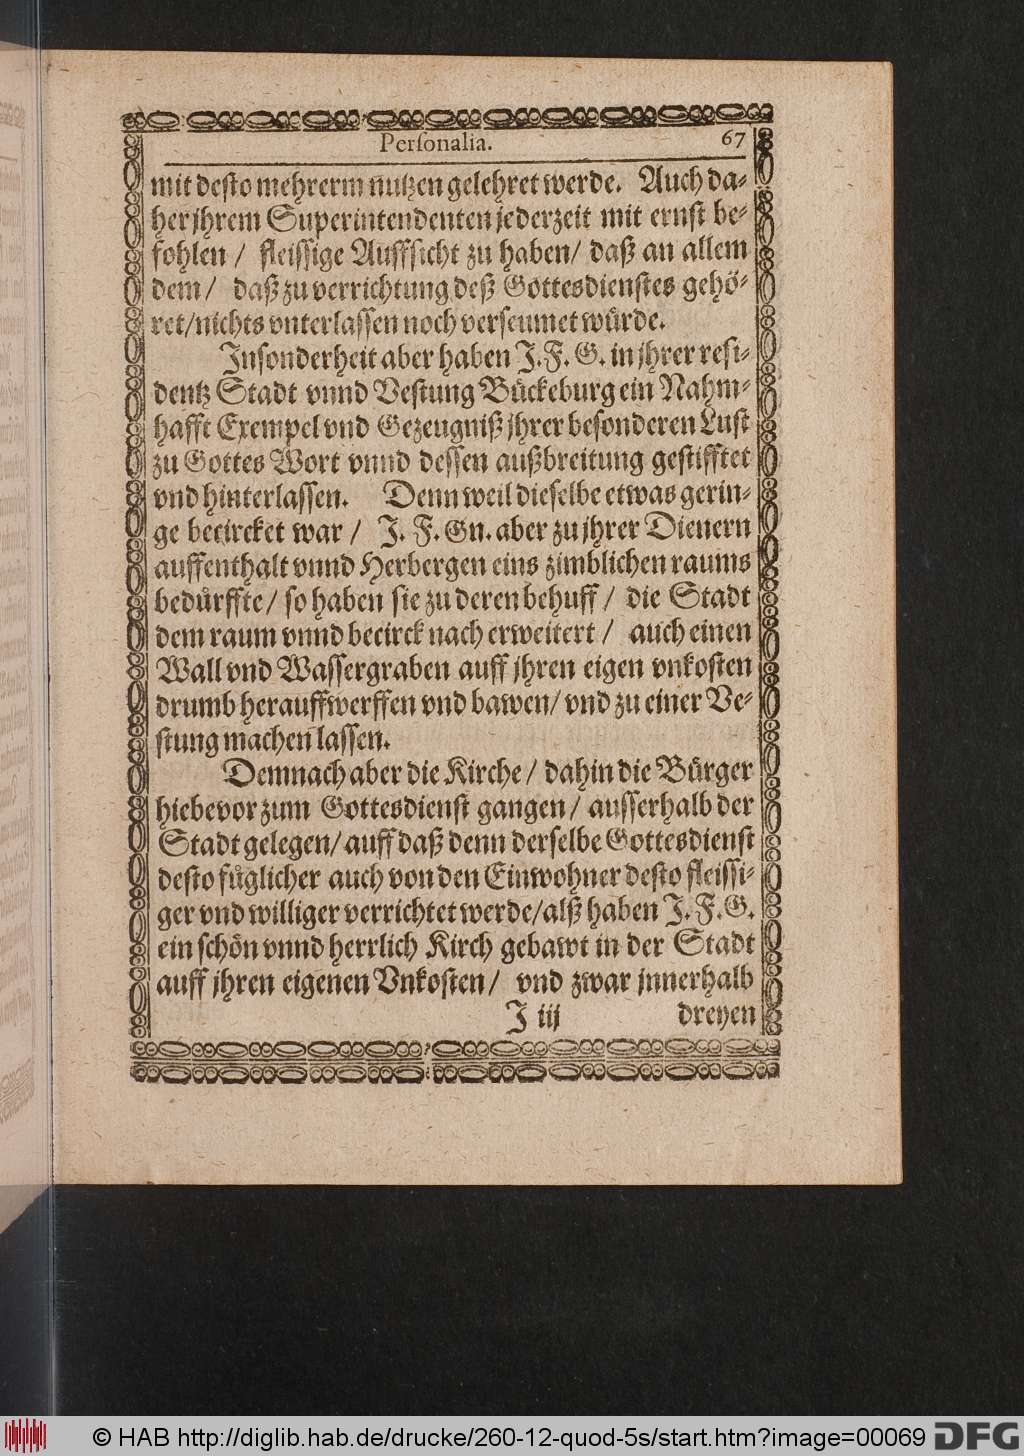 Personalia. 67
mit desto mehrerm nutzen gelehret werde. Auch da-
her jhrem Superintendenten jederzeit mit ernst be-
fohlen / fleissige Auffsicht zu haben / daß an allem
dem / daß zu verrichtung deß Gottesdienstes gehö-
ret / nichts vnterlassen noch verseumet würde.
Insonderheit aber haben J. F. G. in jhrer resi-
dentz Stadt vnnd Vestung Bückeburg ein Nahm-
hafft Exempel vnd Gezeugniß jhrer besonderen Lust
zu Gottes Wort vnnd dessen außbreitung gestifftet
vnd hinterlassen. Denn weil dieselbe etwas gerin-
ge becircket war / J. F. Gn. aber zu jhrer Dienern
auffenthalt vnnd Herbergen eins zimblichen raums
bedürffte / so haben sie zu deren behuff / die Stadt
dem raum vnnd becirck nach erweitert / auch einen
Wall vnd Wassergraben auff jhren eigen vnkosten
drumb herauffwerffen vnd bawen / vnd zu einer Ve-
stung machen lassen.
Demnach aber die Kirche / dahin die Bürger
hiebevor zum Gottesdienst gangen / ausserhalb der
Stadt gelegen / auff daß denn derselbe Gottesdienst
desto füglicher auch von den Einwohner desto fleissi-
ger vnd williger verrichtet werde / alß haben J. F. G.
ein schön vnnd herrlich Kirch gebawt in der Stadt
auff jhren eigenen Vnkosten / vnd zwar jnnerhalb
J iij dreyen
© HAB http://diglib.hab.de/drucke/260-12-quod-5s/start.htm?image=00069 DFG